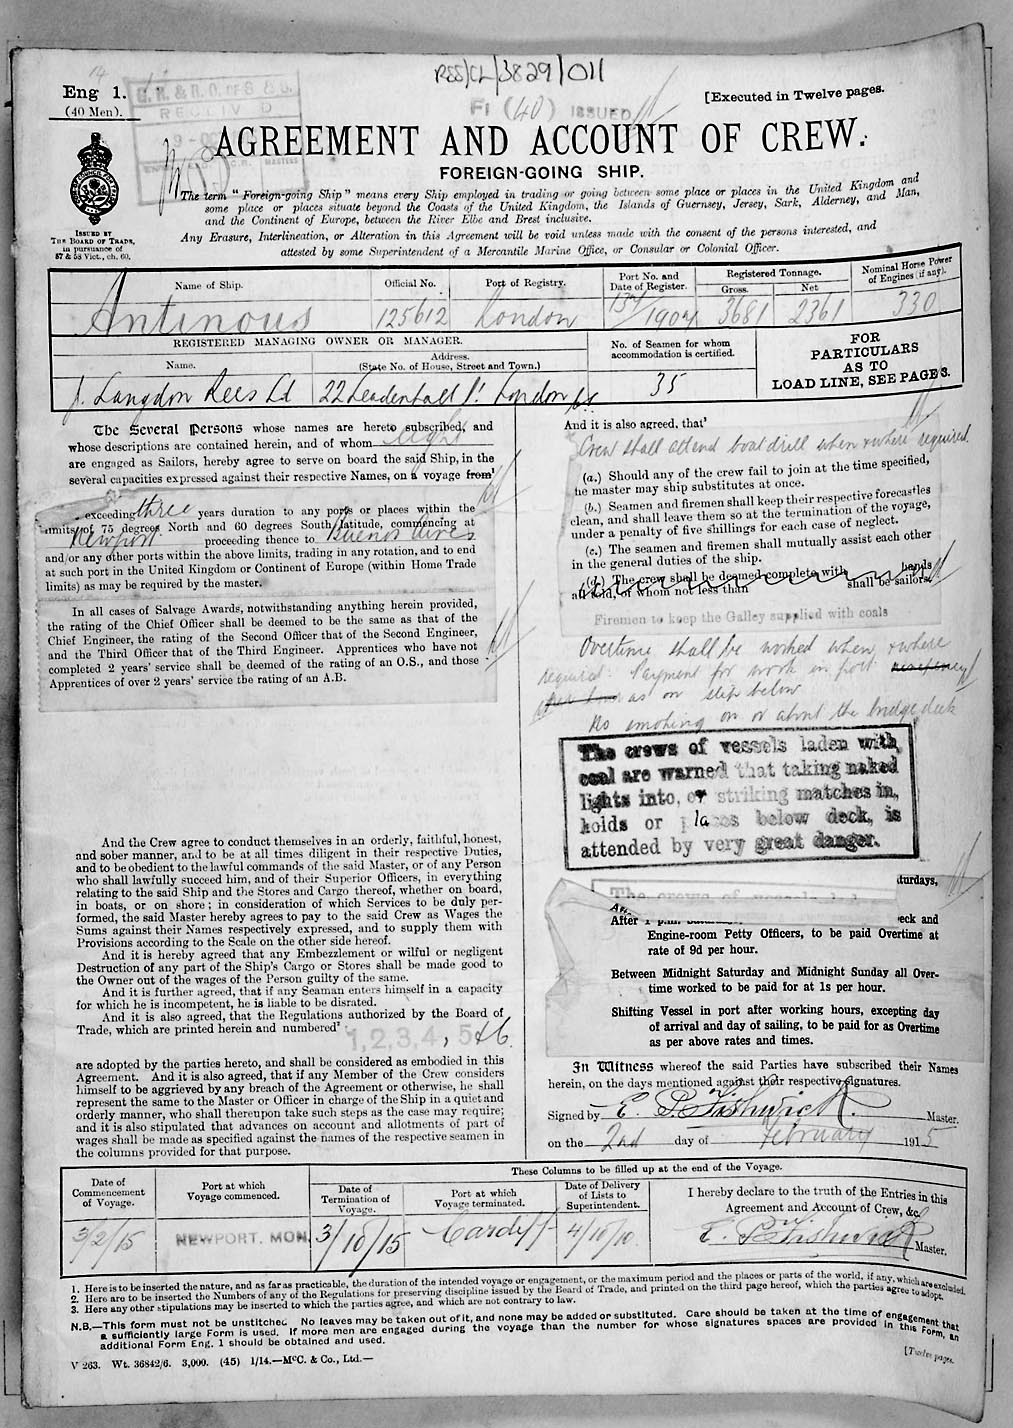 RSS/CL/3829/011
Eng 1.
(40 Men).
G.R. & R.O. OF S & S.
RECEIVED
FI (40) ISSUED
[Executed in Twelve pages.
AGREEMENT AND ACCOUNT OF CREW.
FOREIGN-GOING SHIP.
ISSUED BY
THE BOARD OF TRADE,
in pursuance of
57 & 58 Vict., ch. 60.
The term "Foreign-going Ship" means every Ship employed in trading or going between some place or places in the United Kingdom and
some place or places situate beyond the Coasts of the United Kingdom, the Islands of Guernsey, Jersey, Sark, Alderney, and Man,
and the Continent of Europe, between the River Elbe and Brest inclusive.
Any Erasure, Interlineation, or Alteration in this Agreement will be void unless made with the consent of the persons interested, and
attested by some Superintendent of a Mercantile Marine Office, or Consular or Colonial Officer.
Name of Ship. Official No. Port of Registry. Port No. and Date of Register. Registered Tonnage. Gross. Net Nominal Horse Power of Engines (if any).
Antinous 125612 London 1907 3681 2361 330
REGISTERED MANAGING OWNER OR MANAGER.
Name. Address.
(State No. of House, Street and Town.)
No. of Seamen for whom
accommodation is certified.
J. Langdon Rees Ld 22 Leadenhall St London 35
FOR
PARTICULARS
AS TO
LOAD LINE, SEE PAGE 3.
The Several Persons whose names are hereto subscribed, and
whose descriptions are contained herein, and of whom eight
are engaged as Sailors, hereby agree to serve on board the said Ship, in the
several capacities expressed against their respective Names, on a voyage from¹
exceeding three years duration to any ports or places within the
limits of 75 degrees North and 60 degrees South latitude, commencing at
Newport proceeding thence to Buenos Aires
and/or any other ports within the above limits, trading in any rotation, and to end
at such port in the United Kingdom or Continent of Europe (within Home Trade
limits) as may be required by the master.
In all cases of Salvage Awards, notwithstanding anything herein provided,
the rating of the Chief Officer shall be deemed to be the same as that of the
Chief Engineer, the rating of the Second Officer that of the Second Engineer,
and the Third Officer that of the Third Engineer. Apprentices who have not
completed 2 years' service shall be deemed of the rating of an O.S., and those
Apprentices of over 2 years' service the rating of an A.B.
And the Crew agree to conduct themselves in an orderly, faithful, honest,
and sober manner, and to be at all times diligent in their respective Duties,
and to be obedient to the lawful commands of the said Master, or of any Person
who shall lawfully succeed him, and of their Superior Officers, in everything
relating to the said Ship and the Stores and Cargo thereof, whether on board,
in boats, or on shore; in consideration of which Services to be duly per-
formed, the said Master hereby agrees to pay to the said Crew as Wages the
Sums against their Names respectively expressed, and to supply them with
Provisions according to the Scale on the other side hereof.
And it is hereby agreed that any Embezzlement or wilful or negligent
Destruction of any part of the Ship's Cargo or Stores shall be made good to
the Owner out of the wages of the Person guilty of the same.
And it is further agreed, that if any Seaman enters himself in a capacity
for which he is incompetent, he is liable to be disrated.
And it is also agreed, that the Regulations authorized by the Board of
Trade, which are printed herein and numbered² 1, 2, 3, 4, 5 & 6
are adopted by the parties hereto, and shall be considered as embodied in this
Agreement. And it is also agreed, that if any Member of the Crew considers
himself to be aggrieved by any breach of the Agreement or otherwise, he shall
represent the same to the Master or Officer in charge of the Ship in a quiet and
orderly manner, who shall thereupon take such steps as the case may require;
and it is also stipulated that advances on account and allotments of part of
wages shall be made as specified against the names of the respective seamen in
the columns provided for that purpose.
And it is also agreed, that³
Crew shall attend boat drill when & where required.
(a.) Should any of the crew fail to join at the time specified,
the master may ship substitutes at once.
(b.) Seamen and firemen shall keep their respective forecastles
clean, and shall leave them so at the termination of the voyage,
under a penalty of five shillings for each case of neglect.
(c.) The seamen and firemen shall mutually assist each other
in the general duties of the ship.
(d.) The crew shall be deemed complete with hands
all told, of whom not less than shall be sailors.
Firemen to keep the Galley supplied with coals
Overtime shall be worked when & where
required. Payment for work in port
as on slip below
No smoking on or about the bridge deck
The crews of vessels laden with
coal are warned that taking naked
lights into, or striking matches in,
holds or places below deck, is
attended by very great danger.
The crews of vessels laden
turdays,
After 1 p.m. eck and
Engine-room Petty Officers, to be paid Overtime at
rate of 9d per hour.
Between Midnight Saturday and Midnight Sunday all Over-
time worked to be paid for at 1s per hour.
Shifting Vessel in port after working hours, excepting day
of arrival and day of sailing, to be paid for as Overtime
as per above rates and times.
In Witness whereof the said Parties have subscribed their Names
herein, on the days mentioned against their respective signatures.
Signed by E. P. Fishwick. Master.
on the 2nd day of February 1915
These Columns to be filled up at the end of the Voyage.
Date of Commencement of Voyage. Port at which Voyage commenced. Date of Termination of Voyage. Port at which Voyage terminated. Date of Delivery of Lists to Superintendent.
I hereby declare to the truth of the Entries in this
Agreement and Account of Crew, &c.
3/2/15 NEWPORT, MON. 3/10/15 Cardiff 4/10/15 E. P. Fishwick Master.
1. Here is to be inserted the nature, and as far as practicable, the duration of the intended voyage or engagement, or the maximum period and the places or parts of the world, if any, which are excluded.
2. Here are to be inserted the Numbers of any of the Regulations for preserving discipline issued by the Board of Trade, and printed on the third page hereof, which the parties agree to adopt.
3. Here any other stipulations may be inserted to which the parties agree, and which are not contrary to law.
N.B.—This form must not be unstitched. No leaves may be taken out of it, and none may be added or substituted. Care should be taken at the time of engagement that
a sufficiently large Form is used. If more men are engaged during the voyage than the number for whose signatures spaces are provided in this Form, an
additional Form Eng. 1 should be obtained and used.
V 263. Wt. 36842/6. 3,000. (45) 1/14.—McC. & Co., Ltd.—
[Twelve pages.